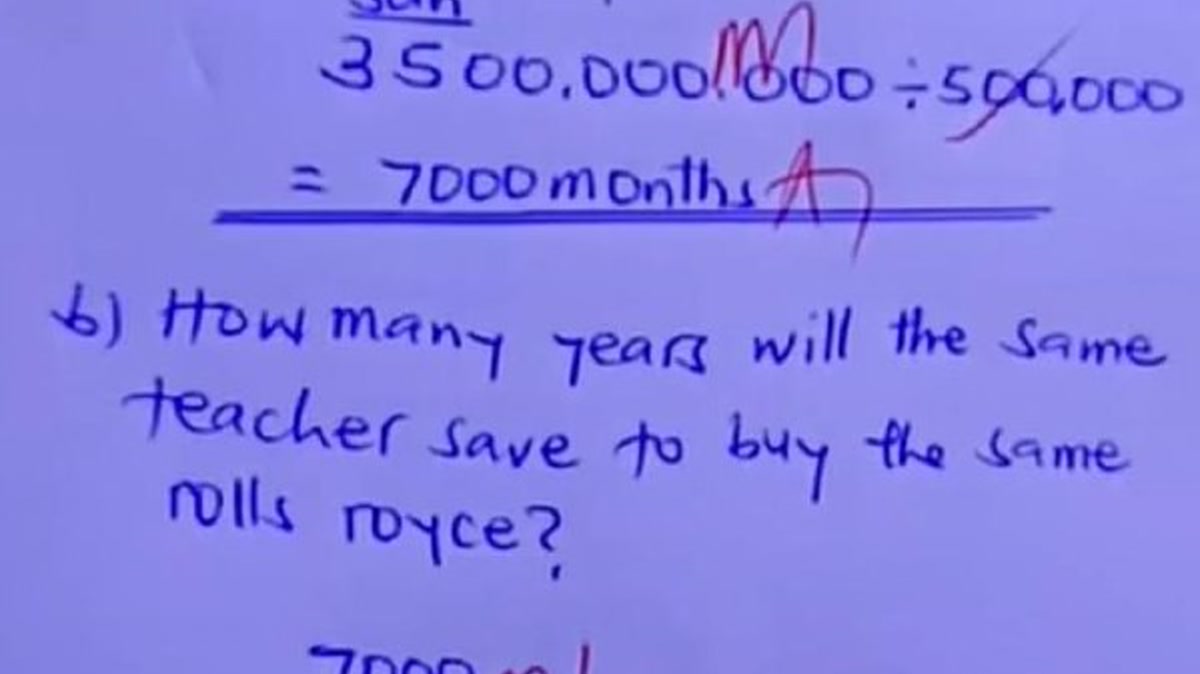 soln
3500.000.000 ÷ 500,000
= 7000 months
b) How many years will the same
teacher save to buy the same
rolls royce?
7000